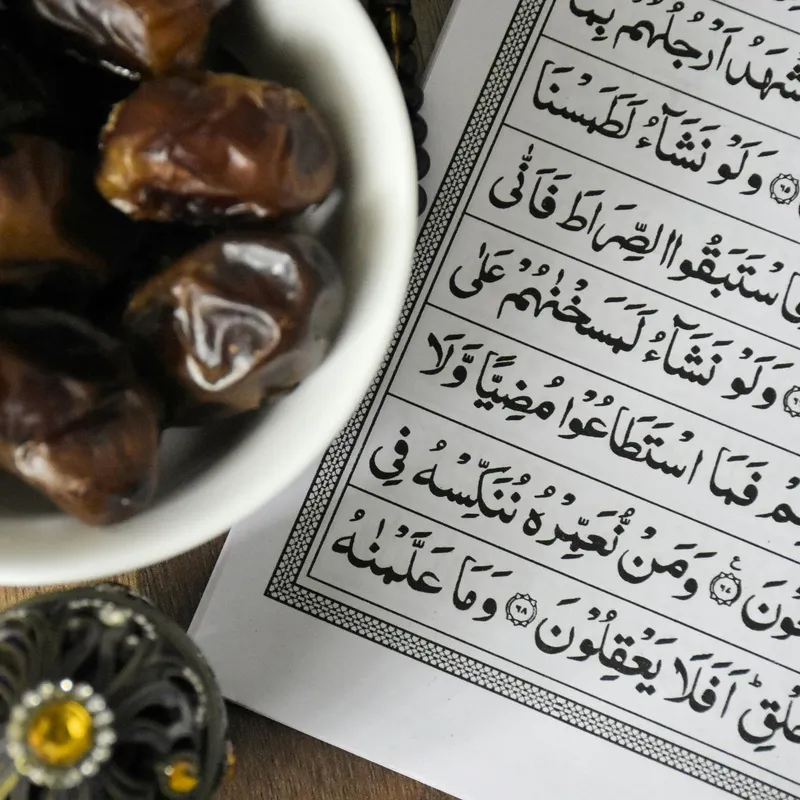 تَشْهَدُ اَرْجُلُهُمْ بِمَا
۶۵ وَلَوْ نَشَآءُ لَطَمَسْنَا
فَاسْتَبَقُوا الصِّرَاطَ فَاَنّٰى
وَلَوْ نَشَآءُ لَمَسَخْنٰهُمْ عَلٰى
فَمَا اسْتَطَاعُوْا مُضِيًّا وَّلَا
۶۷ وَمَنْ نُّعَمِّرْهُ نُنَكِّسْهُ فِى
الْخَلْقِ ؕ اَفَلَا يَعْقِلُوْنَ ۶۸ وَمَا عَلَّمْنٰهُ